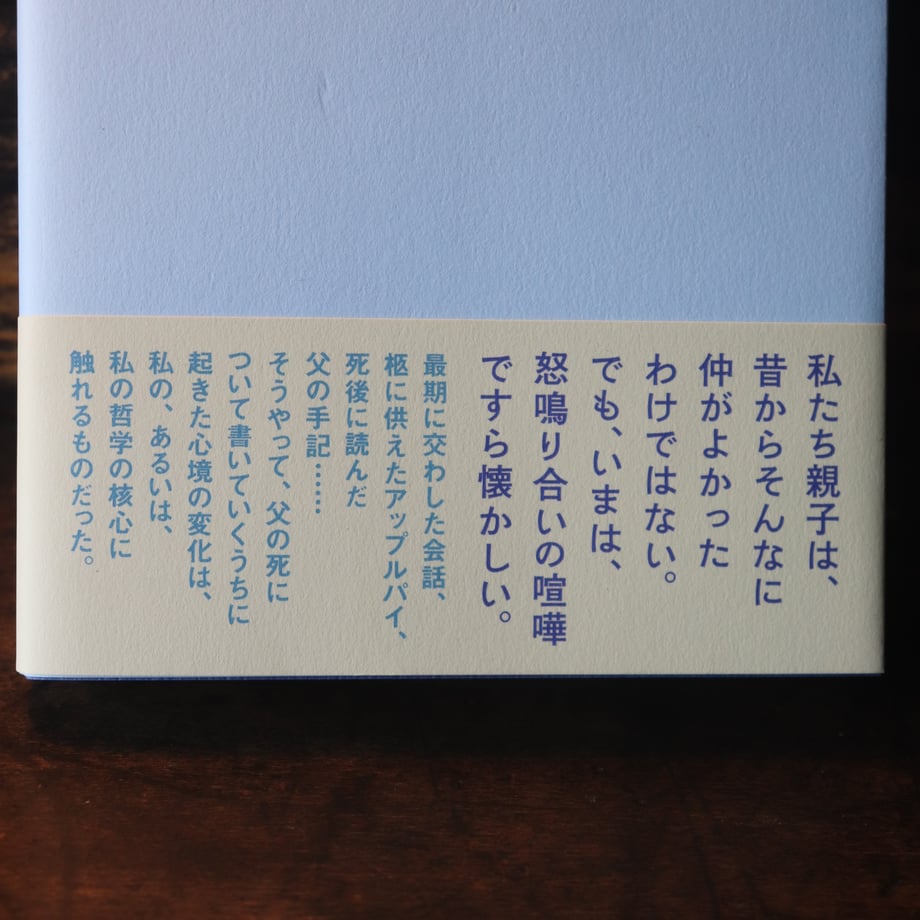 私たち親子は、
昔からそんなに
仲がよかった
わけではない。
でも、いまは、
怒鳴り合いの喧嘩
ですら懐かしい。
最期に交わした会話、
柩に供えたアップルパイ、
死後に読んだ
父の手記……
そうやって、父の死に
ついて書いていくうちに
起きた心境の変化は、
私の、あるいは、
私の哲学の核心に
触れるものだった。